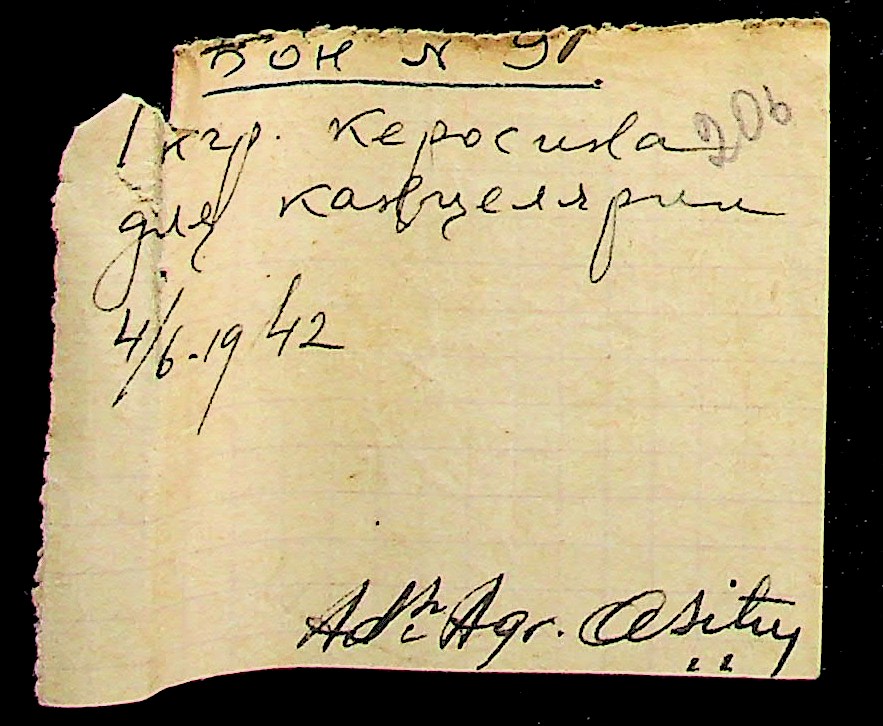 БОН N 9
1 кгр. керосина 206
для канцелярии
4/6-1942
Adr. Agr.